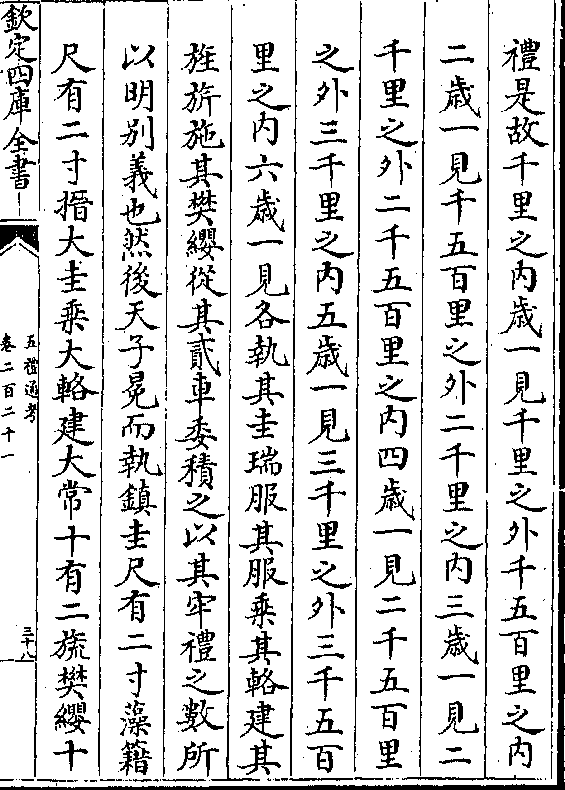 禮是故千里之内歳一見千里之外千五百里之内
二歳一見千五百里之外二千里之内三歳一見二
千里之外二千五百里之内四歳一見二千五百里
之外三千里之内五歳一見三千里之外三千五百
里之内六歳一見各執其圭瑞服其服乗其輅建其
旌旂施其樊纓從其貳車委積之以其牢禮之數所
以明别義也然後天子冕而執鎮圭尺有二寸藻籍
尺有二寸搢大圭乗大輅建大常十有二旒樊纓十
欽定四庫全書
五禮通考
卷二百二十一
三十八